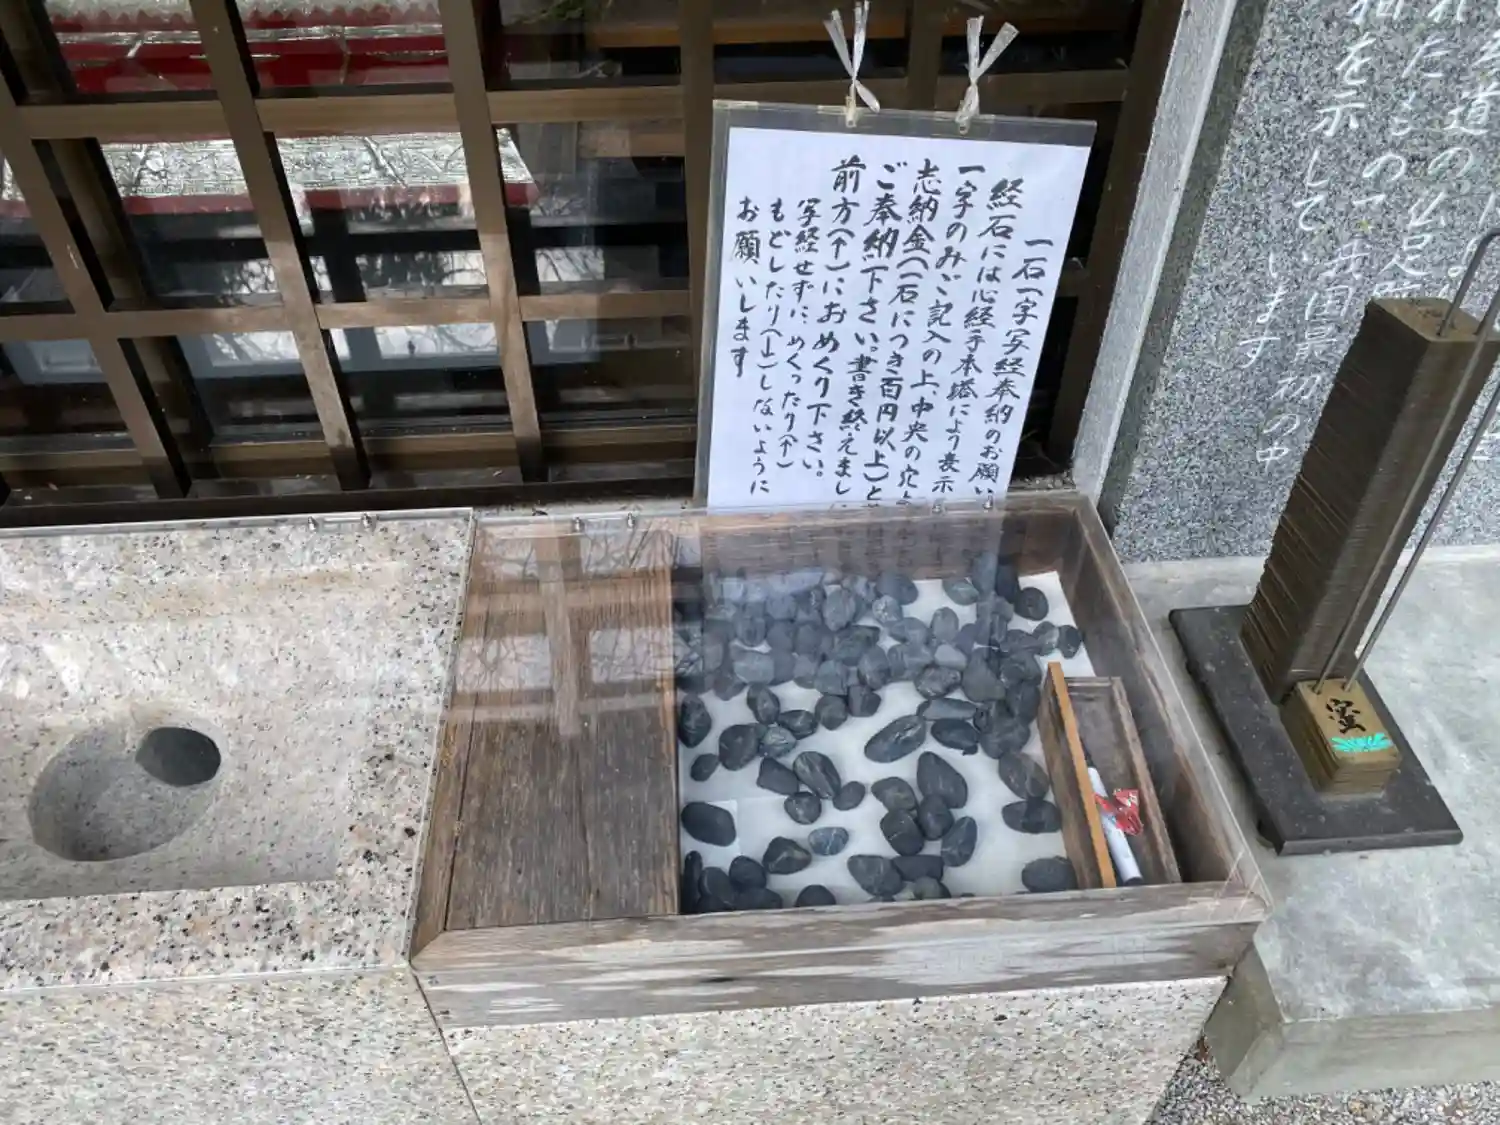 一石一字写経奉納のお願い
経石には心経手本塔により表示
一字のみご記入の上、中央の穴
志納金(一石につき百円以上)と
ご奉納下さい。書き終えまし
前方(↑)におめくり下さい。
写経せずに、めくったり(↑)
もどしたり(↓)しないように
お願いします
道の仏足
たもの
相を示しています
我国最初の中